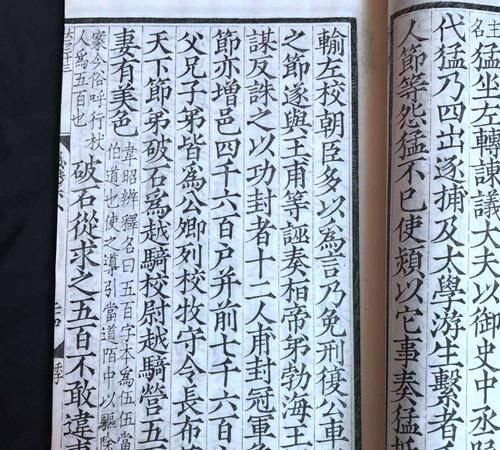 主
名
猛坐左轉諫議大夫以御史中丞
代猛乃四出逐捕及太學游生繫者
人節等怨猛不已使熲以它事奏猛抵
輸左校朝臣多以為言乃免刑復公車
之節遂與王甫等誣奏桓帝弟勃海王
謀反誅之以功封者十二人甫封冠軍
節亦增邑四千六百戶并前七千六百
父兄子弟皆為公卿列校牧守令長布
天下節弟破石為越騎校尉越騎營五
妻有美色
韋昭辨釋名曰五百字本為伍伍當
伯道也使之導引當道陌中以驅除
案今俗呼行杖
人為五百也
破石從求之五百不敢違